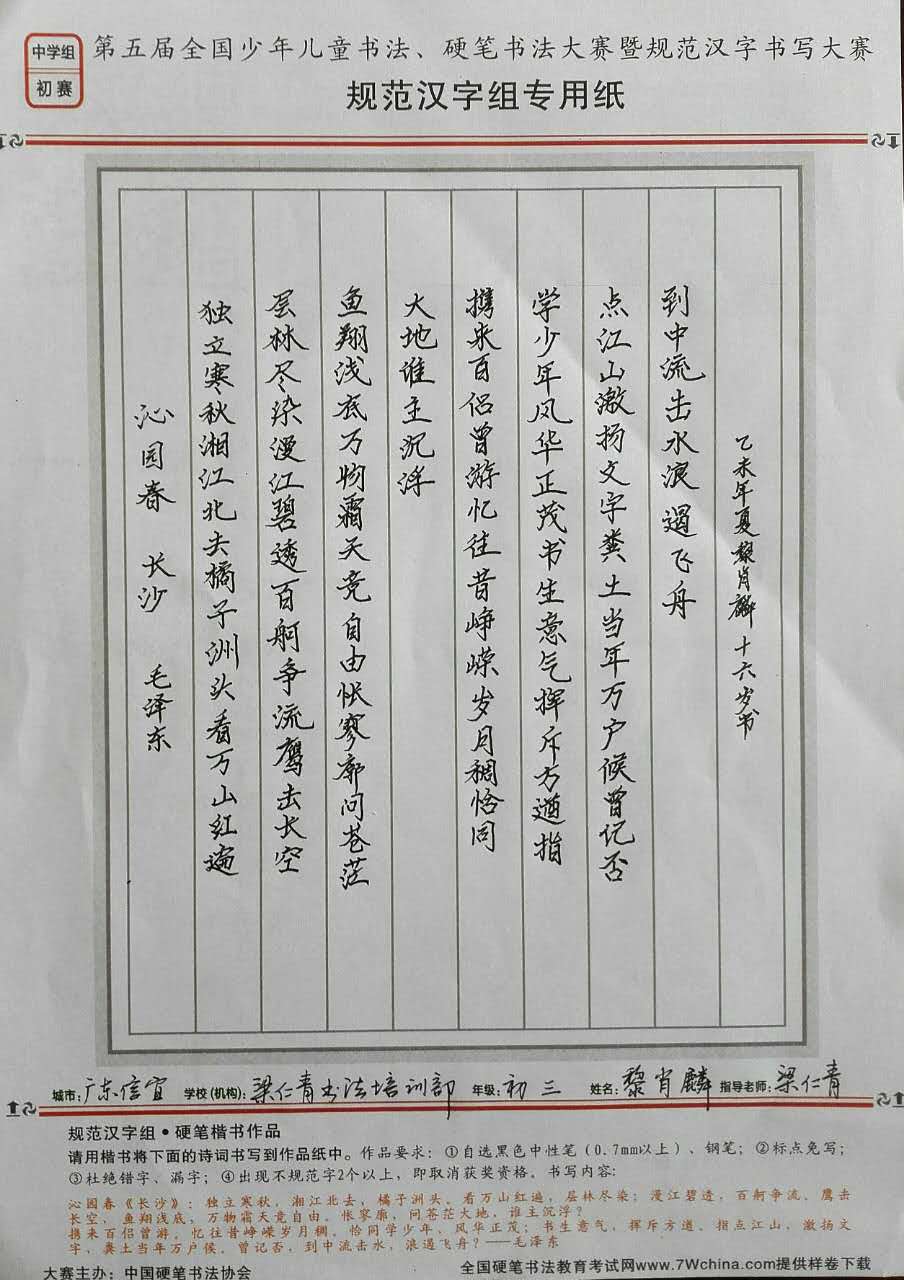 中学组
初赛
第五届全国少年儿童书法、硬笔书法大赛暨规范汉字书写大赛
规范汉字组专用纸
沁园春 长沙 毛泽东
独立寒秋湘江北去橘子洲头看万山红遍
层林尽染漫江碧透百舸争流鹰击长空
鱼翔浅底万物霜天竞自由怅寥廓问苍茫
大地谁主沉浮
携来百侣曾游忆往昔峥嵘岁月稠恰同
学少年风华正茂书生意气挥斥方遒指
点江山激扬文字粪土当年万户候曾记否
到中流击水浪遏飞舟
乙未年夏黎肖麟十六岁书
城市:广东信宜 学校(机构):梁仁青书法培训部 年级:初三 姓名:黎肖麟 指导老师:梁仁青
规范汉字组·硬笔楷书作品
请用楷书将下面的诗词书写到作品纸中。作品要求:①自选黑色中性笔(0.7mm以上)、钢笔;②标点免写;
③杜绝错字、漏字;④出现不规范字2个以上,即取消获奖资格。书写内容:
沁园春《长沙》:独立寒秋,湘江北去,橘子洲头。看万山红遍,层林尽染;漫江碧透,百舸争流。鹰击
长空,鱼翔浅底,万物霜天竞自由。怅寥廓,问苍茫大地,谁主沉浮?
携来百侣曾游,忆往昔峥嵘岁月稠。恰同学少年,风华正茂;书生意气,挥斥方遒。指点江山,激扬文
字,粪土当年万户侯。曾记否,到中流击水,浪遏飞舟?——毛泽东
大赛主办:中国硬笔书法协会
全国硬笔书法教育考试网www.7Wchina.com提供样卷下载